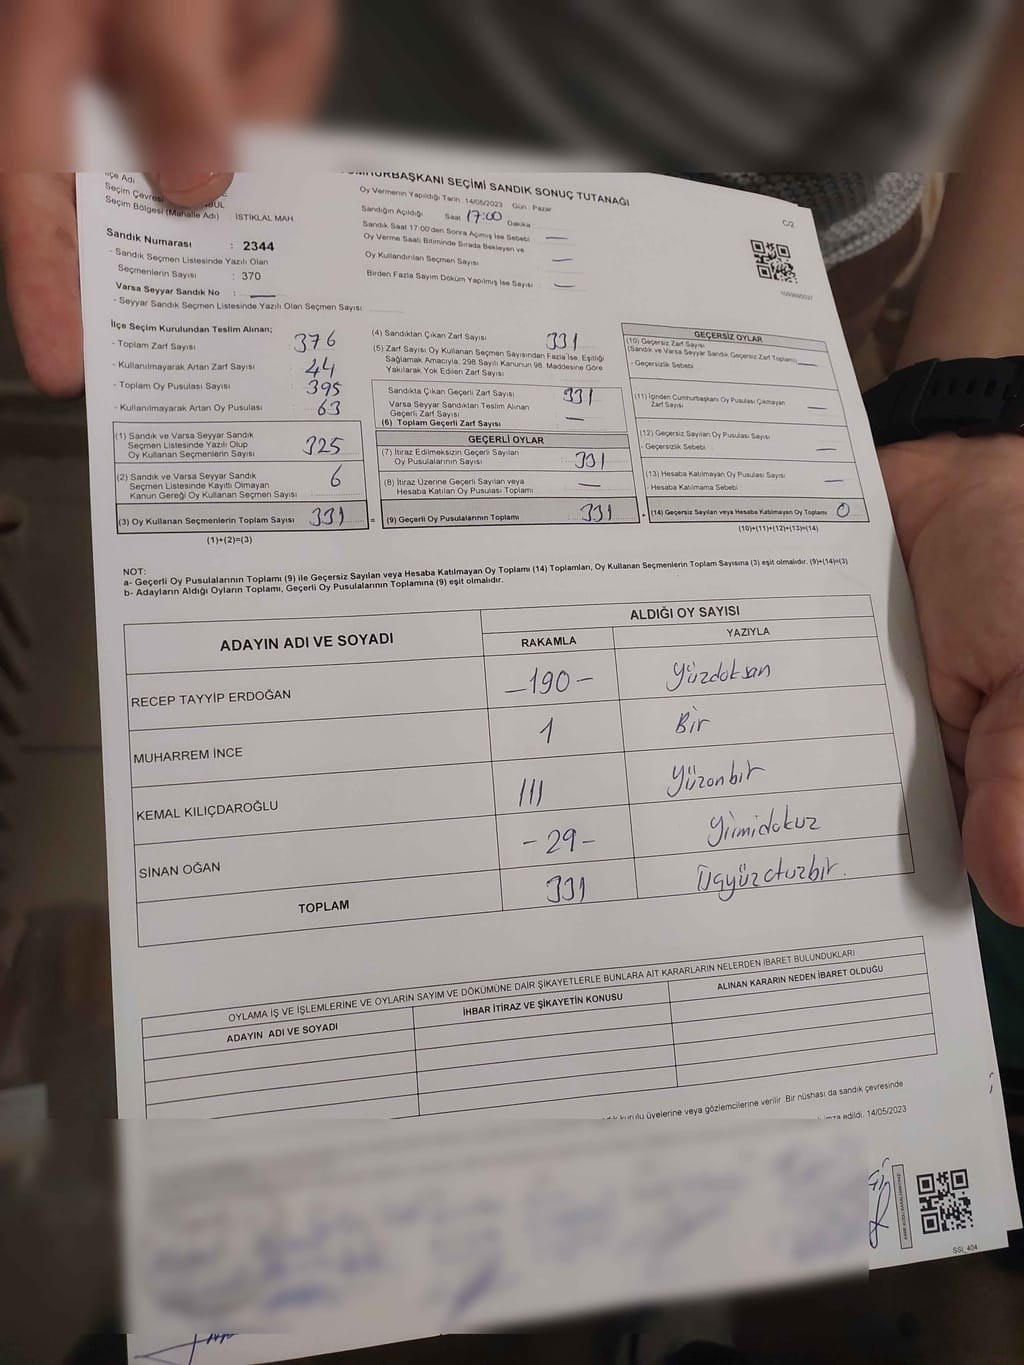 CUMHURBAŞKANI SEÇİMİ SANDIK SONUÇ TUTANAĞI
İlçe Adı
Seçim Çevresi
Seçim Bölgesi (Mahalle Adı) : İSTİKLAL MAH.
Sandık Numarası : 2344
- Sandık Seçmen Listesinde Yazılı Olan
Seçmenlerin Sayısı : 370
Varsa Seyyar Sandık No : —
- Seyyar Sandık Seçmen Listesinde Yazılı Olan Seçmen Sayısı
Oy Vermenin Yapıldığı Tarih : 14/05/2023 Gün : Pazar
Sandığın Açıldığı Saat 17:00 Dakika
Sandık Saat 17:00'den Sonra Açılmış İse Sebebi —
Oy Verme Saati Bitiminde Sırada Bekleyen ve
Oy Kullandırılan Seçmen Sayısı —
Birden Fazla Sayım Döküm Yapılmış İse Sayısı : —
C/2
İlçe Seçim Kurulundan Teslim Alınan;
- Toplam Zarf Sayısı 376
- Kullanılmayarak Artan Zarf Sayısı 44
- Toplam Oy Pusulası Sayısı 395
- Kullanılmayarak Artan Oy Pusulası : 63
(1) Sandık ve Varsa Seyyar Sandık
Seçmen Listesinde Yazılı Olup
Oy Kullanan Seçmenlerin Sayısı 325
(2) Sandık ve Varsa Seyyar Sandık
Seçmen Listesinde Kayıtlı Olmayan
Kanun Gereği Oy Kullanan Seçmen Sayısı 6
(3) Oy Kullanan Seçmenlerin Toplam Sayısı 331 =
(1)+(2)=(3)
(4) Sandıktan Çıkan Zarf Sayısı 331
(5) Zarf Sayısı Oy Kullanan Seçmen Sayısından Fazla İse, Eşitliği
Sağlamak Amacıyla; 298 Sayılı Kanunun 98. Maddesine Göre
Yakılarak Yok Edilen Zarf Sayısı
Sandıkta Çıkan Geçerli Zarf Sayısı 331
Varsa Seyyar Sandıktan Teslim Alınan
Geçerli Zarf Sayısı —
(6) Toplam Geçerli Zarf Sayısı
GEÇERLİ OYLAR
(7) İtiraz Edilmeksizin Geçerli Sayılan
Oy Pusulalarının Sayısı 331
(8) İtiraz Üzerine Geçerli Sayılan veya
Hesaba Katılan Oy Pusulası Toplamı —
(9) Geçerli Oy Pusulalarının Toplamı 331 +
GEÇERSİZ OYLAR
(10) Geçersiz Zarf Sayısı
(Sandık ve Varsa Seyyar Sandık Geçersiz Zarf Toplamı) —
- Geçersizlik Sebebi
(11) İçinden Cumhurbaşkanı Oy Pusulası Çıkmayan
Zarf Sayısı —
(12) Geçersiz Sayılan Oy Pusulası Sayısı
- Geçersizlik Sebebi —
(13) Hesaba Katılmayan Oy Pusulası Sayısı
- Hesaba Katılmama Sebebi —
(14) Geçersiz Sayılan veya Hesaba Katılmayan Oy Toplamı 0
(10)+(11)+(12)+(13)=(14)
NOT:
a- Geçerli Oy Pusulalarının Toplamı (9) ile Geçersiz Sayılan veya Hesaba Katılmayan Oy Toplamı (14) Toplamları, Oy Kullanan Seçmenlerin Toplam Sayısına (3) eşit olmalıdır. (9)+(14)=(3)
b- Adayların Aldığı Oyların Toplamı, Geçerli Oy Pusulalarının Toplamına (9) eşit olmalıdır.
ADAYIN ADI VE SOYADI
ALDIĞI OY SAYISI
RAKAMLA YAZIYLA
RECEP TAYYİP ERDOĞAN –190– Yüzdoksan
MUHARREM İNCE 1 Bir
KEMAL KILIÇDAROĞLU 111 Yüzonbir
SİNAN OĞAN –29– Yirmidokuz
TOPLAM 331 Üçyüzotuzbir.
OYLAMA İŞ VE İŞLEMLERİNE VE OYLARIN SAYIM VE DÖKÜMÜNE DAİR ŞİKAYETLERLE BUNLARA AİT KARARLARIN NELERDEN İBARET BULUNDUKLARI
ADAYIN ADI VE SOYADI İHBAR İTİRAZ VE ŞİKAYETİN KONUSU ALINAN KARARIN NEDEN İBARET OLDUĞU
kurulu üyelerine veya gözlemcilerine verilir. Bir nüshası da sandık çevresinde
imza edildi. 14/05/2023
SSI_404